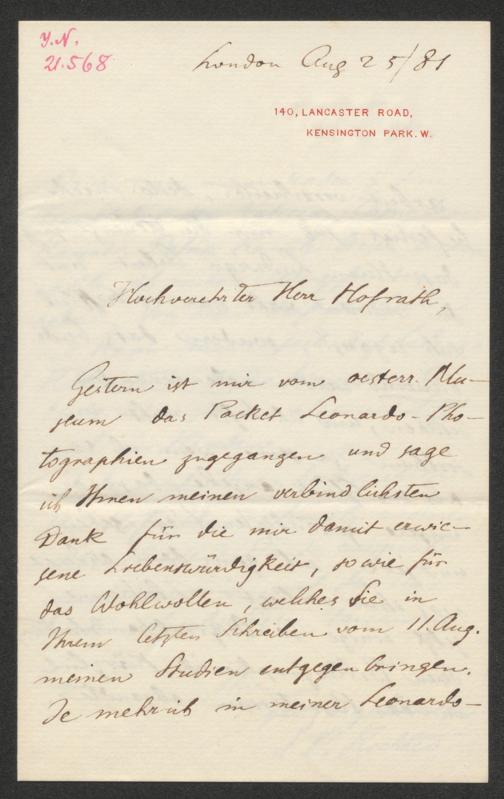 J.N.
21.568
London Aug 25/81
140, LANCASTER ROAD,
KENSINGTON PARK. W.
Hochverehrter Herr Hofrath,
Gestern ist mir vom oesterr. Mu-
seum das Packet Leonardo-Pho-
tographien zugegangen und sage
ich Ihnen meinen verbindlichsten
Dank für die mir damit erwie-
sene Liebenswürdigkeit, sowie für
das Wohlwollen, welches Sie in
Ihrem letzten Schreiben vom 11. Aug.
meinen Studien entgegenbringen.
Je mehr ich in meiner Leonardo-